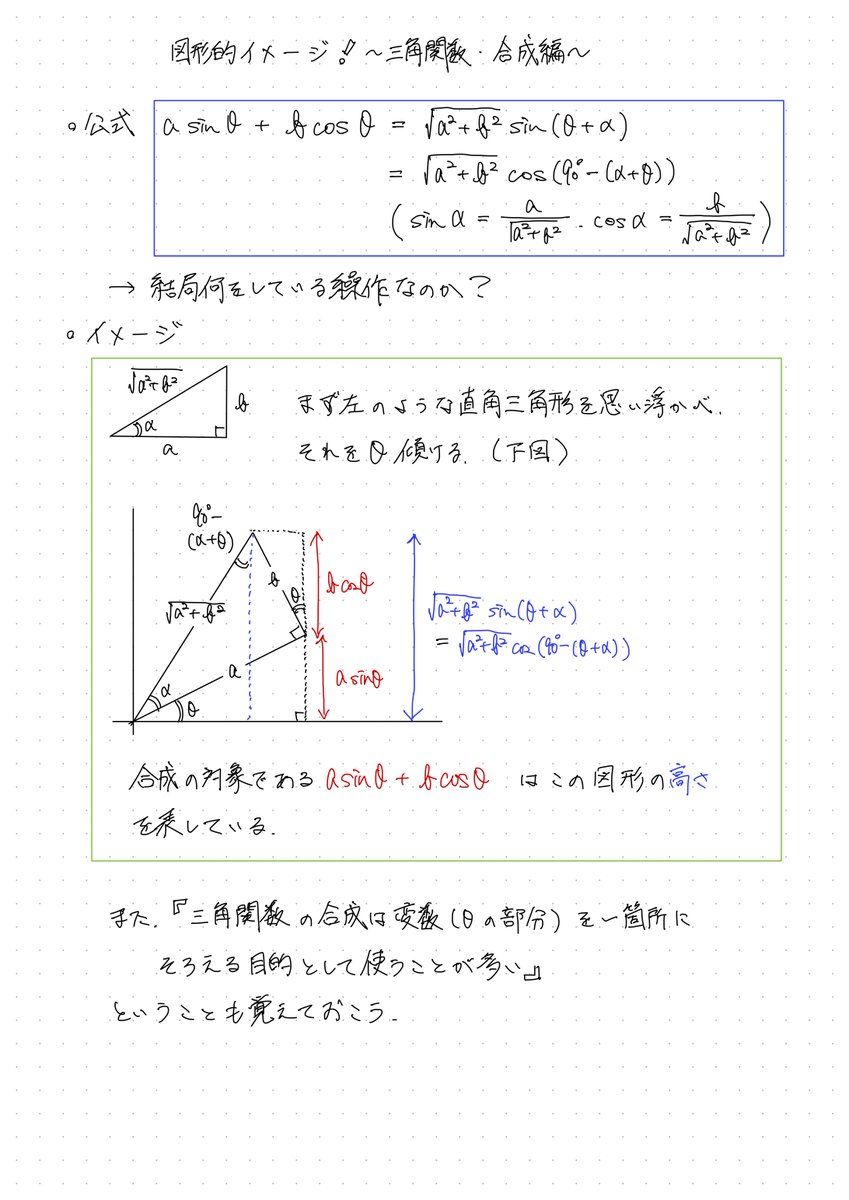 図形的イメージ!! ～三角関数・合成編～
○ 公式 a sinθ + b cosθ = √(a²+b²) sin(θ+α)
= √(a²+b²) cos(90°-(α+θ))
(sinα = a/√(a²+b²) . cosα = b/√(a²+b²))
→ 結局何をしている操作なのか?
○ イメージ
√(a²+b²)
b
α
a
まず左のような直角三角形を思い浮かべ.
それをθ傾ける. (下図)
90°-
(α+θ)
b
θ
b cosθ
√(a²+b²)
√(a²+b²) sin(θ+α)
= √(a²+b²) cos(90°-(θ+α))
a
a sinθ
α
θ
合成の対象である a sinθ + b cosθ はこの図形の高さ
を表している.
また.『三角関数の合成は変数(θの部分)を一箇所に
そろえる目的として使うことが多い』
ということも覚えておこう.